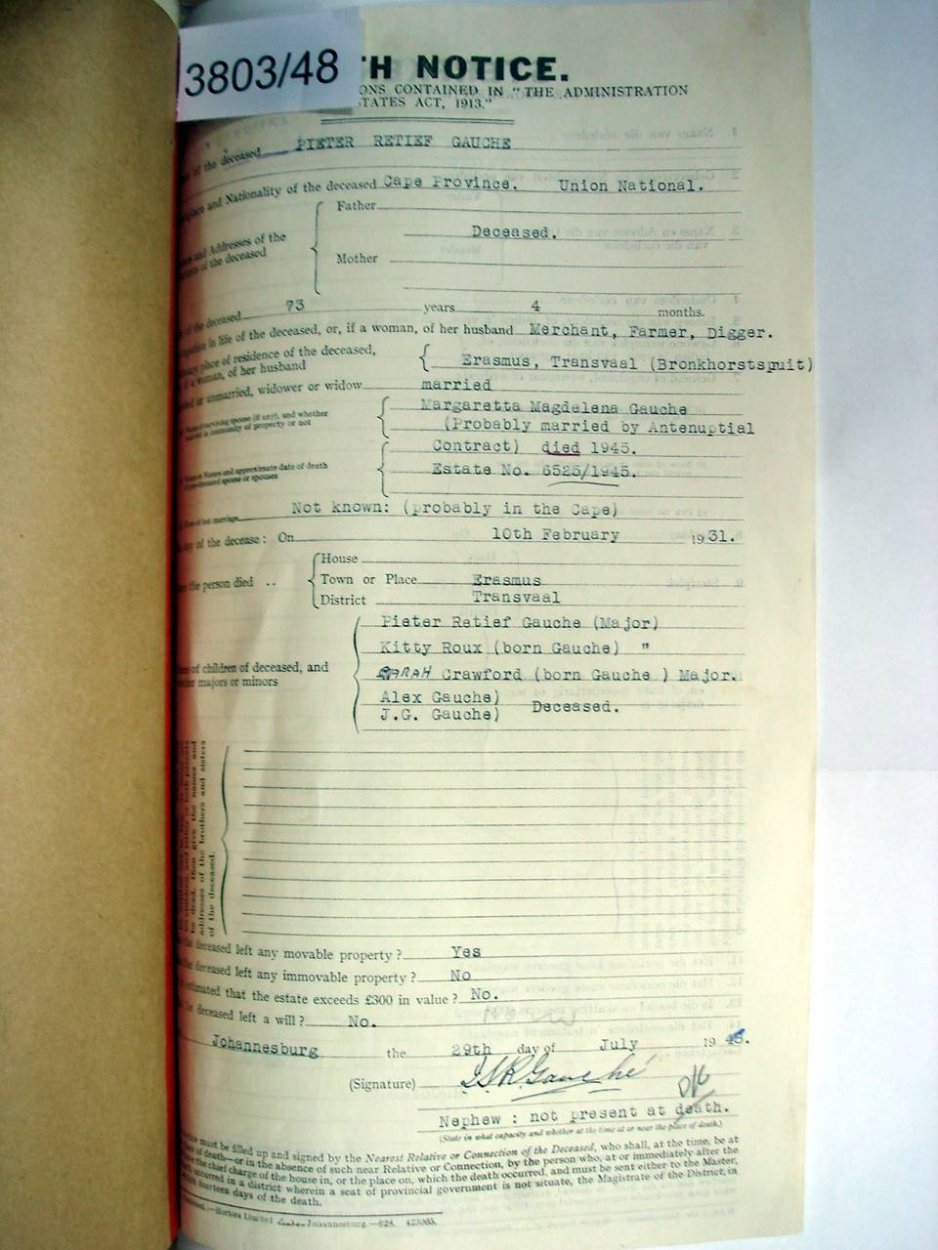 3803/48
TH NOTICE.
ONS CONTAINED IN "THE ADMINISTRATION
TATES ACT, 1913."
of the deceased PIETER RETIEF GAUCHE
place and Nationality of the deceased Cape Province. Union National.
Father
and Addresses of the
of the deceased
Deceased.
Mother
of the deceased 73 years 4 months.
in life of the deceased, or, if a woman, of her husband Merchant, Farmer, Digger.
place of residence of the deceased,
if a woman, of her husband
Erasmus, Transvaal (Bronkhorstspuit)
or unmarried, widower or widow married
Name of surviving spouse (if any), and whether
married in community of property or not
Margaretta Magdalena Gauche
(Probably married by Antenuptial
Contract) died 1945.
Names and approximate date of death
of predeceased spouse or spouses
Estate No. 6525/1945.
Place of last marriage Not known: (probably in the Cape)
day of the decease: On 10th February 1931.
the person died ..
House
Town or Place Erasmus
District Transvaal
Pieter Retief Gauche (Major)
Kitty Roux (born Gauche) "
es of children of deceased, and
whether majors or minors
SARAH Crawford (born Gauche ) Major.
Alex Gauche)
J.G. Gauche) Deceased.
be dead, then give the names and
addresses of the brothers and sisters
of the deceased.
the deceased left any movable property? Yes
the deceased left any immovable property? No
estimated that the estate exceeds £300 in value? No.
the deceased left a will? No.
Johannesburg the 29th day of July 1948.
(Signature) Gauche
Nephew : not present at death.
(State in what capacity and whether at the time at or near the place of death.)
must be filled up and signed by the Nearest Relative or Connection of the Deceased, who shall, at the time, be at
of death—or in the absence of such near Relative or Connection, by the person who, at or immediately after the
the chief charge of the house in, or the place on, which the death occurred, and must be sent either to the Master,
occurred in a district wherein a seat of provincial government is not situate, the Magistrate of the District, in
fourteen days of the death.
Hortors Limited Johannesburg.—628. 423065.